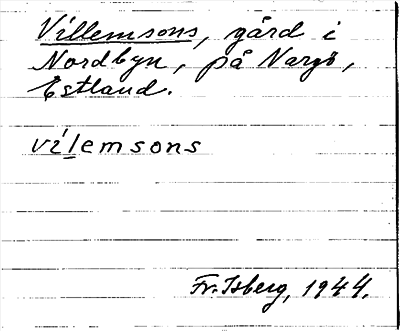 Villemsons, gård i
Nordbyn, på Nargö,
Estland.
vi'lemsons
Fr. Isberg, 1944.